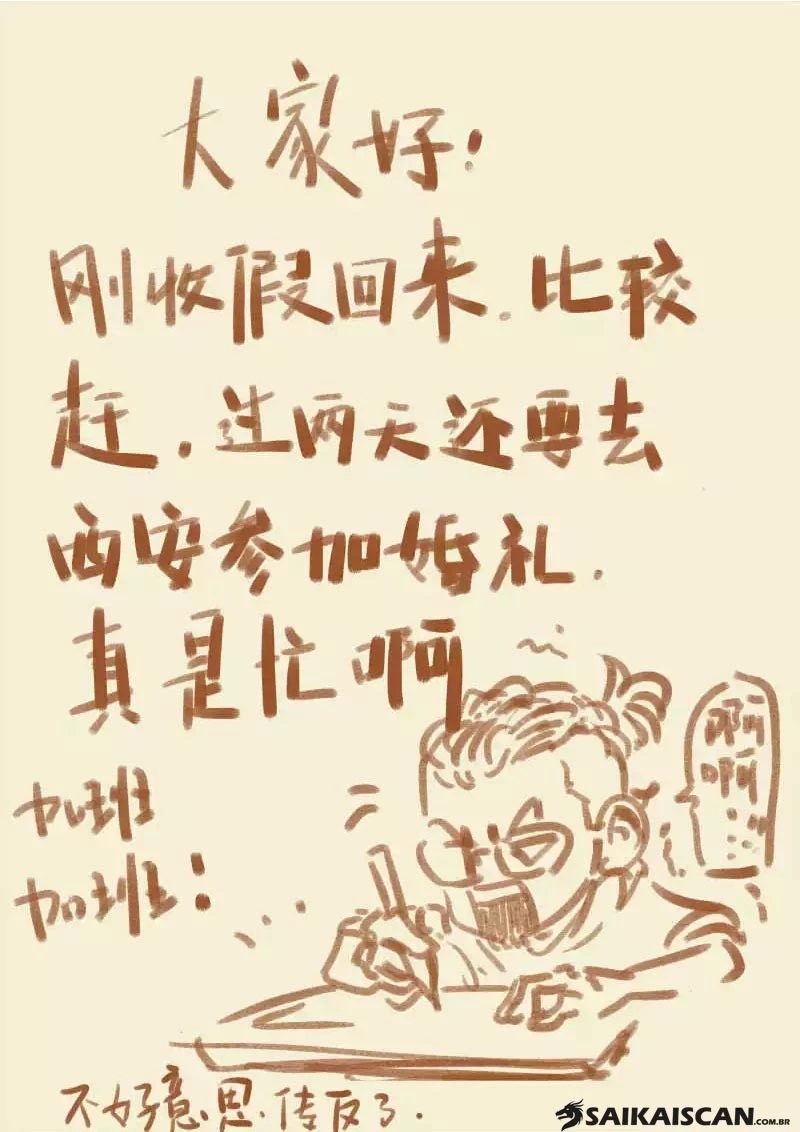 大家好!
刚收假回来.比较
赶,过两天还要去
西安参加婚礼.
真是忙啊
啊
啊
……
加班
加班!
不好意思.传反了.
SAIKAISCAN.COM.BR